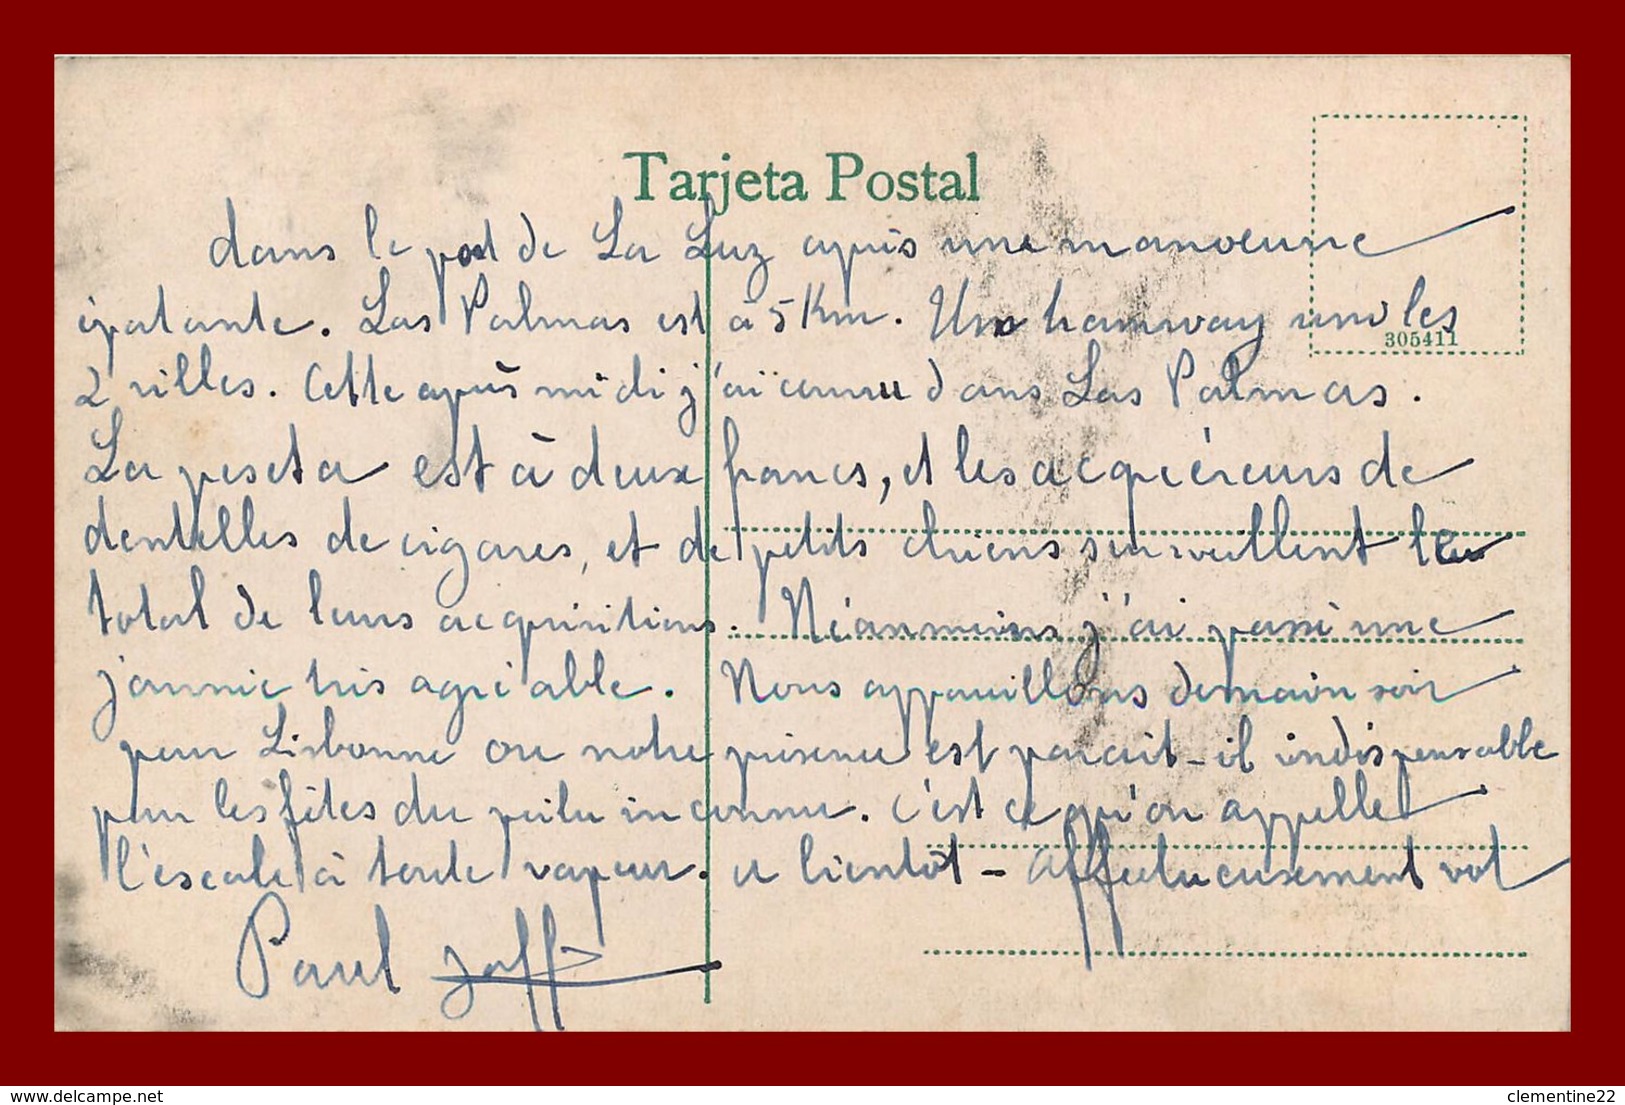 Tarjeta Postal
dans le port de La Luz après une manœuvre
épatante. Las Palmas est à 5 Km. Un tramway unit les
305411
2 villes. Cette après midi j'ai couru dans Las Palmas.
La peseta est à deux francs, et les acquéreurs de
dentelles de cigares, et de petits chiens surveillent leur
total de leurs acquisitions. Néanmoins j'ai passé une
journée très agréable. Nous appareillons demain soir
pour Lisbonne où notre présence est paraît-il indispensable
pour les fêtes du poilu inconnu. C'est ce qu'on appelle
l'escale à toute vapeur. à bientôt - affectueusement vot
Paul Joffé
www.delcampe.net
clementine22